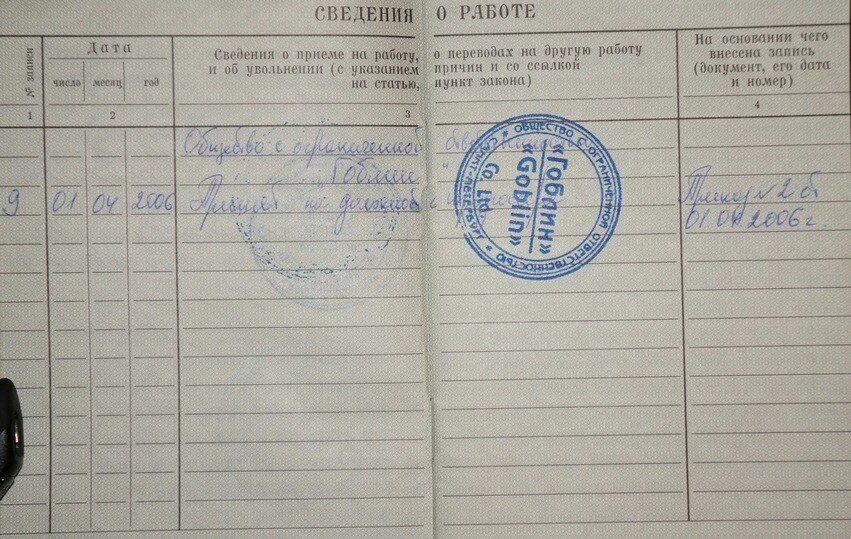 СВЕДЕНИЯ О РАБОТЕ
№ записи
Дата
Сведения о приеме на работу, о переводах на другую работу
и об увольнении (с указанием причин и со ссылкой
на статью, пункт закона)
На основании чего
внесена запись
(документ, его дата
и номер)
число месяц год
1 2 3 4
Общество с ограниченной
9 01 04 2006 Принят на
Приказ № 2 от
01 04 2006 г.
ОБЩЕСТВО С ОГРАНИЧЕННОЙ ОТВЕТСТВЕННОСТЬЮ
«Гоблин»
«Goblin»
Co Ltd